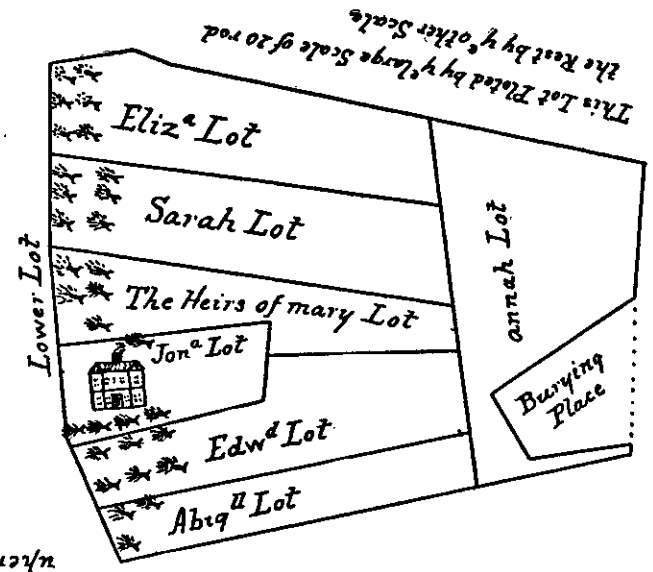 This Lot Ploted by yᵉ large Scale of 20 rod
the Rest by yᵉ other Scale
Elizᵃ Lot
Sarah Lot
The Heirs of mary Lot
Jonᵃ Lot
Edwᵈ Lot
Abigˡˡ Lot
Lower Lot
annah Lot
Burying
Place